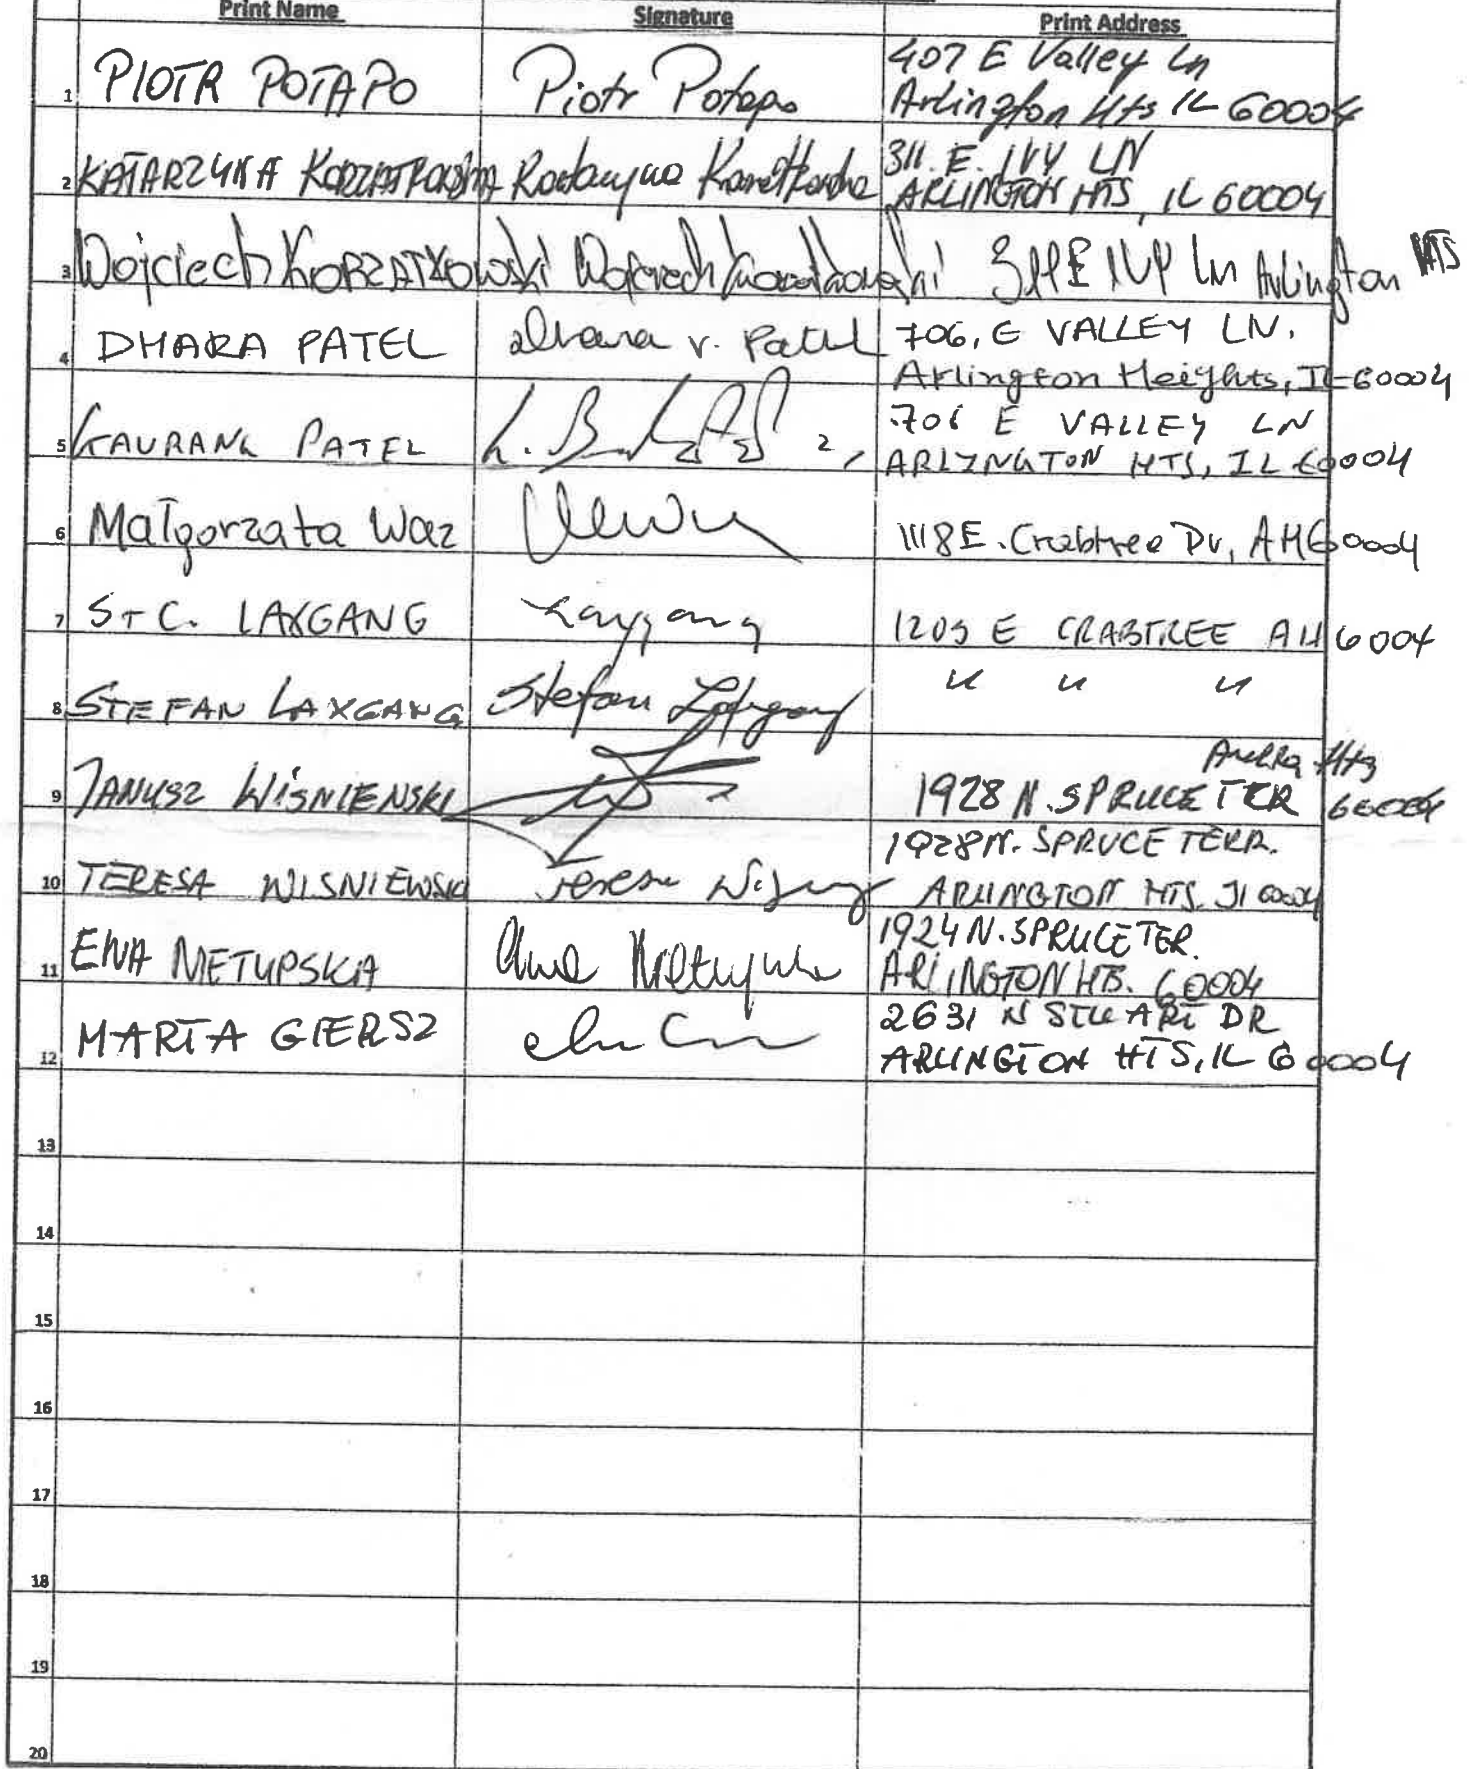 Print Name Signature Print Address
1 PIOTR POTAPO Piotr Potapo 407 E Valley Ln
Arlington Hts IL 60004
2 KATARZYNA 311. E. IVY LN
ARLINGTON HTS, IL 60004
3 Wojciech KORZATKOWSKI Wojciech 311 E IVY Ln Arlington HTS
4 DHARA PATEL dhara v. Patel 706, E VALLEY LN.
Arlington Heights, IL 60004
5 GAURANG PATEL 706 E VALLEY LN
ARLINGTON HTS, IL 60004
6 Małgorzata Waz 1118 E. Crabtree Dr, AH 60004
7 S+C. LAXGANG Laxgang 1205 E CRABTREE AH 6004
8 STEFAN LAXGANG Stefan Laxgang " " "
9 JANUSZ WIŚNIEWSKI 1928 N. SPRUCE TER Hts
60004
10 TERESA WISNIEWSKI Teresa 1928 N. SPRUCE TERR.
ARLINGTON HTS. Il 60004
11 EWA METUPSKA Ewa 1924 N. SPRUCE TER.
ARLINGTON HTS. 60004
12 MARTA GIERSZ 2631 N STUART DR
ARLINGTON HTS, IL 60004
13
14
15
16
17
18
19
20